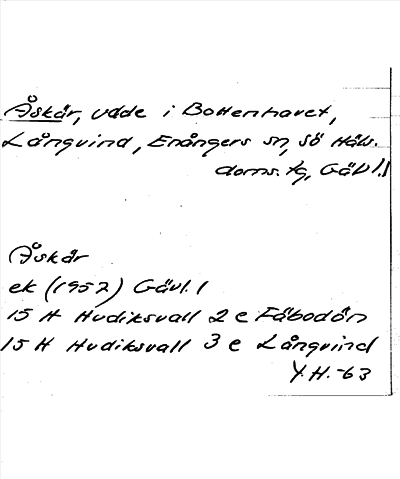 Åskär, udde i Bottenhavet,
Långvind, Enångers sn, Sö Häls.
doms. tg, Gävl. l
Åskär
ek (1957) Gävl. l
15 H Hudiksvall 2 e Fäbodön
15 H Hudiksvall 3 e Långvind
Y.H.-63